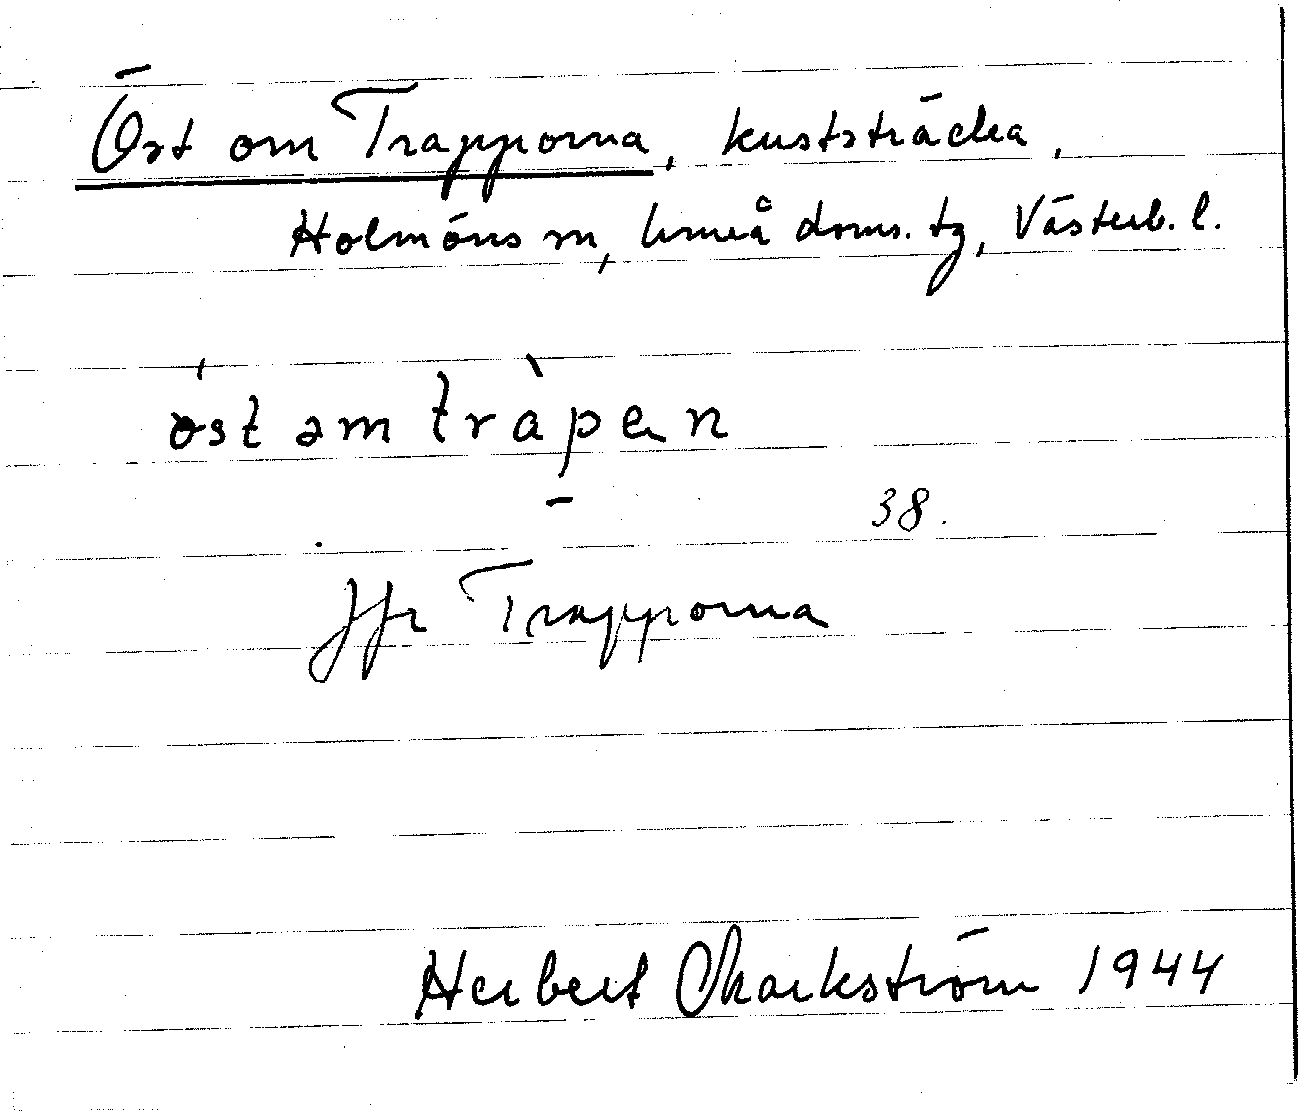 Öst om Trapporna, kuststräcka,
Holmöns sn, Umeå doms. tg, Västerb. l.
óst əm tràpen
38.
Jfr Trapporna
Herbert Markström 1944